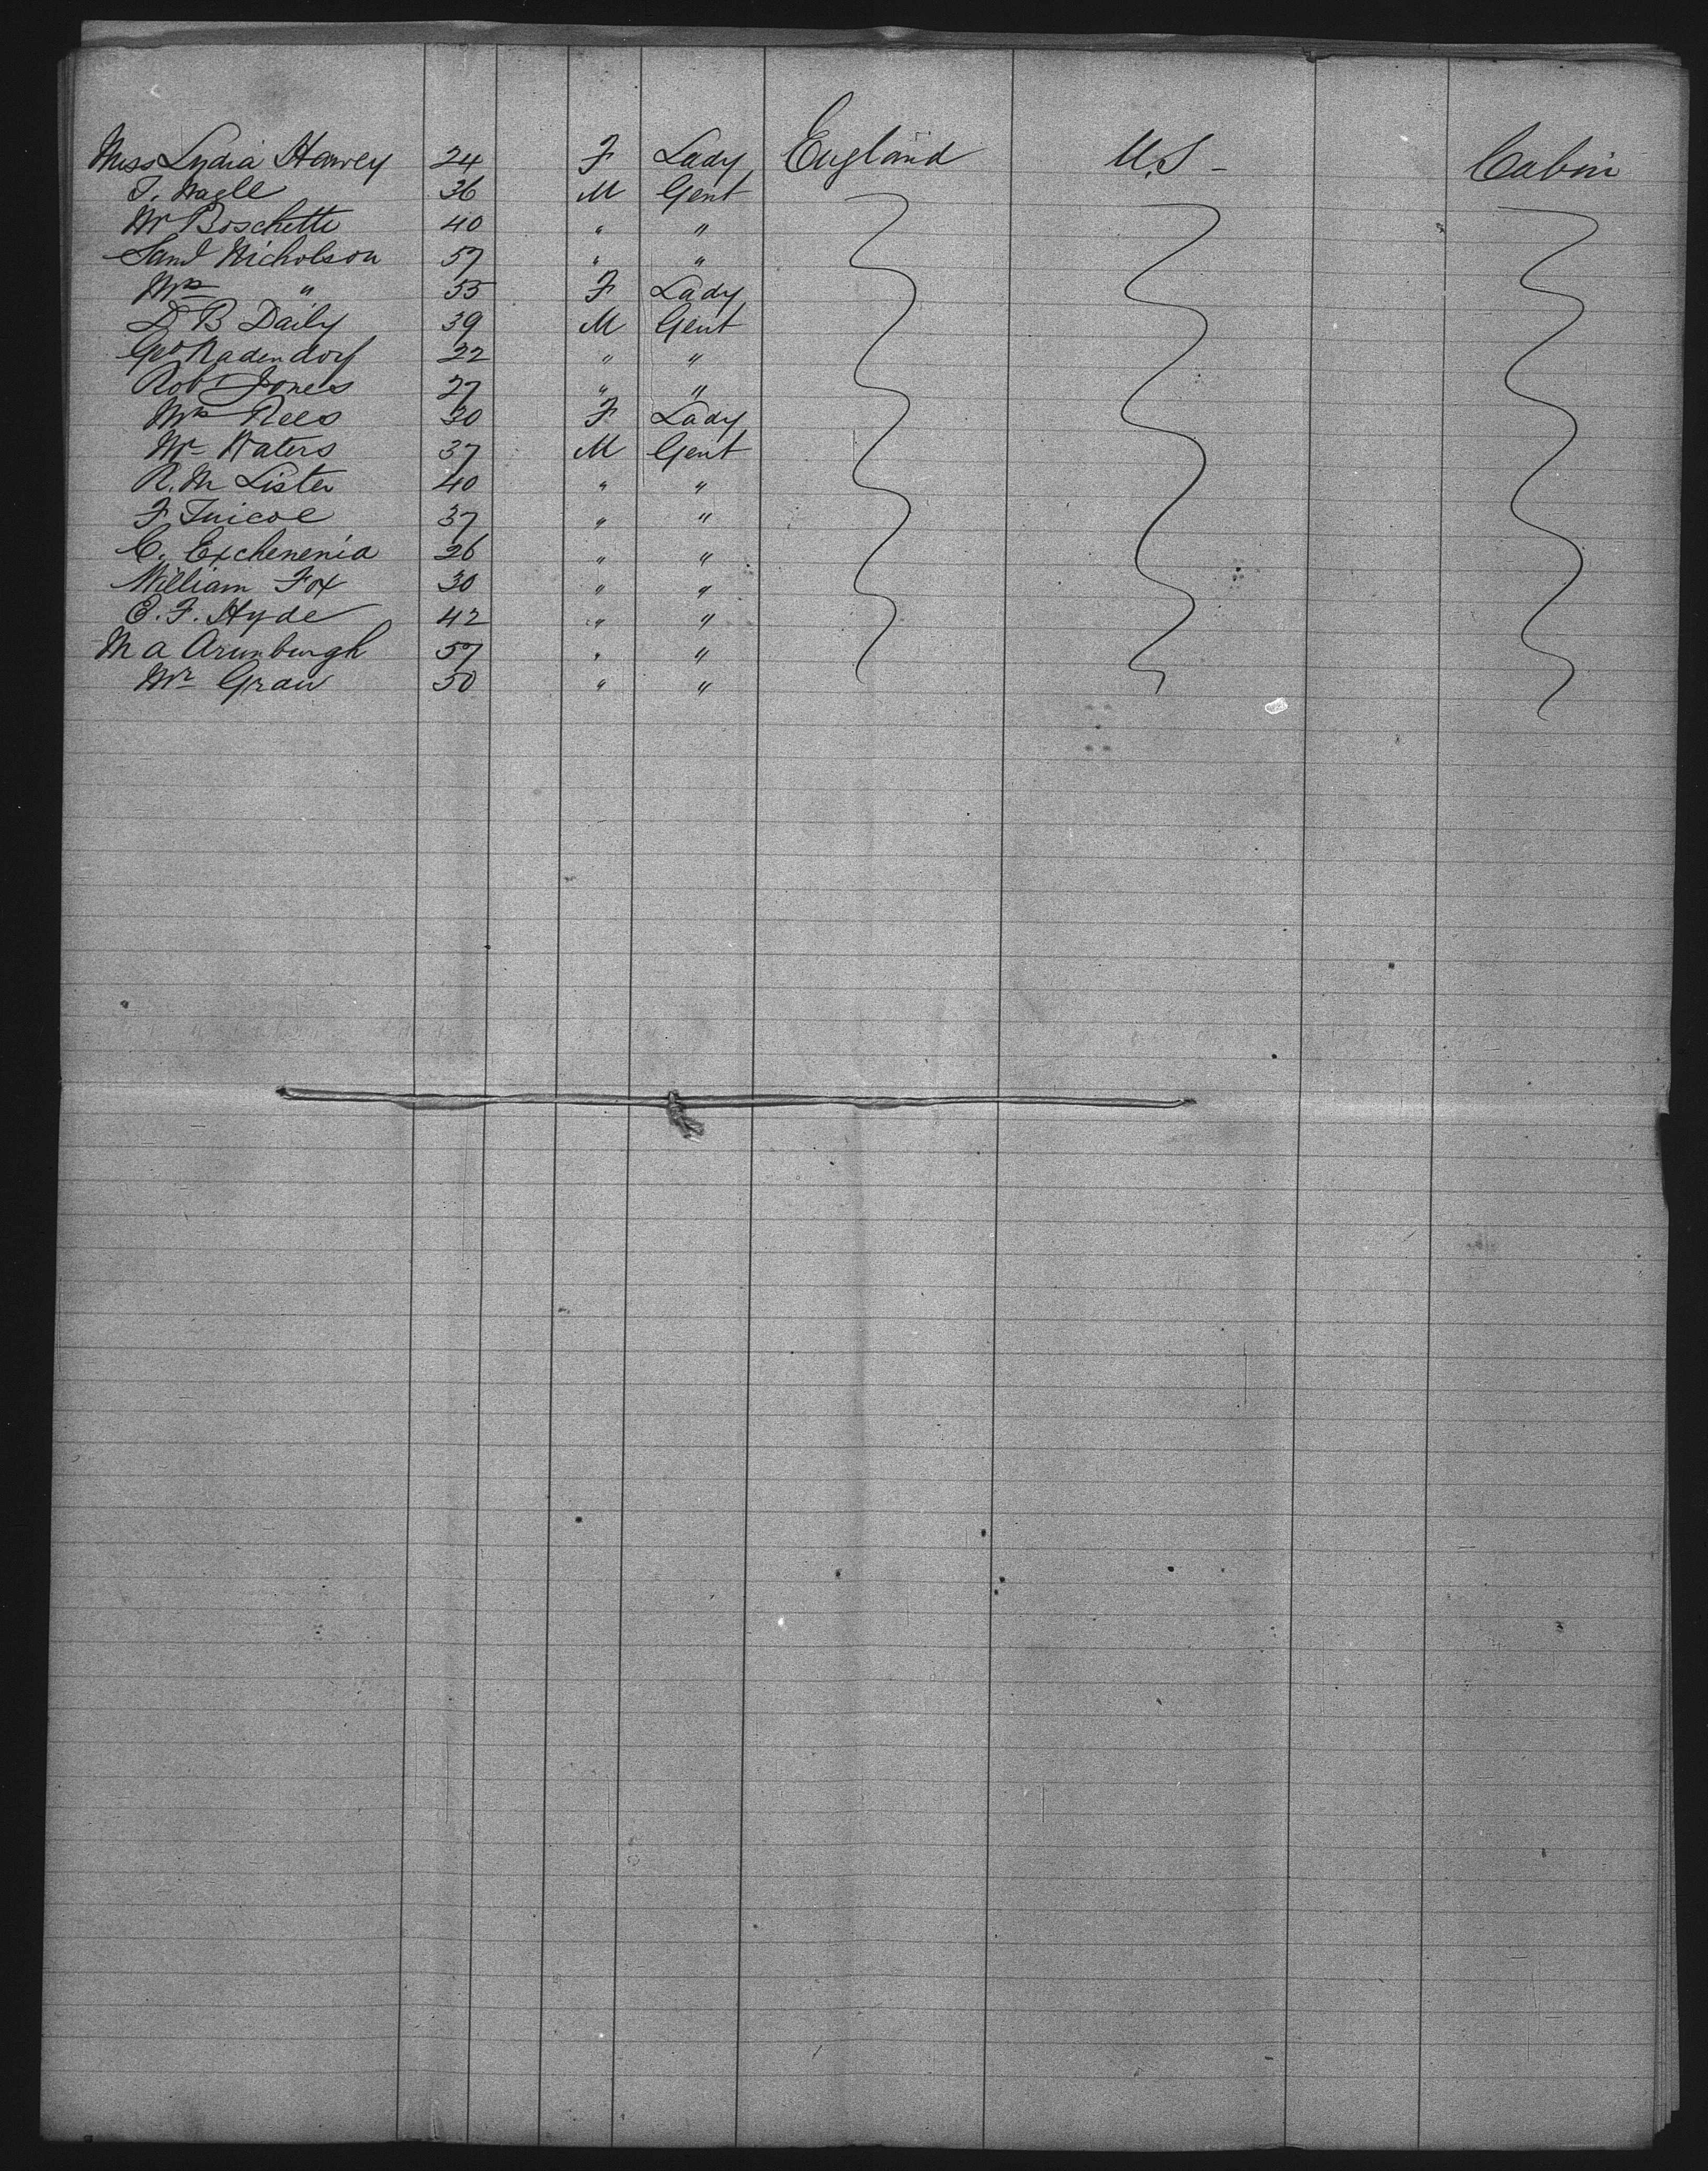 Miss Lydia Harvey 24 F Lady England U.S - Cabin
T. Nagle 36 M Gent
Mr Boschetti 40 " "
Saml Nicholson 57 " "
Mrs " 55 F Lady
D B Daily 39 M Gent
Geo Nadendorf 22 " "
Robt Jones 27 " "
Mrs Rees 30 F Lady
Mr Waters 37 M Gent
R. M Lister 40 " "
F 37 " "
C. Exchenenia 26 " "
William Fox 30 " "
E. F. Hyde 42 " "
M a Arunburgh 57 " "
Mr Grau 50 " "